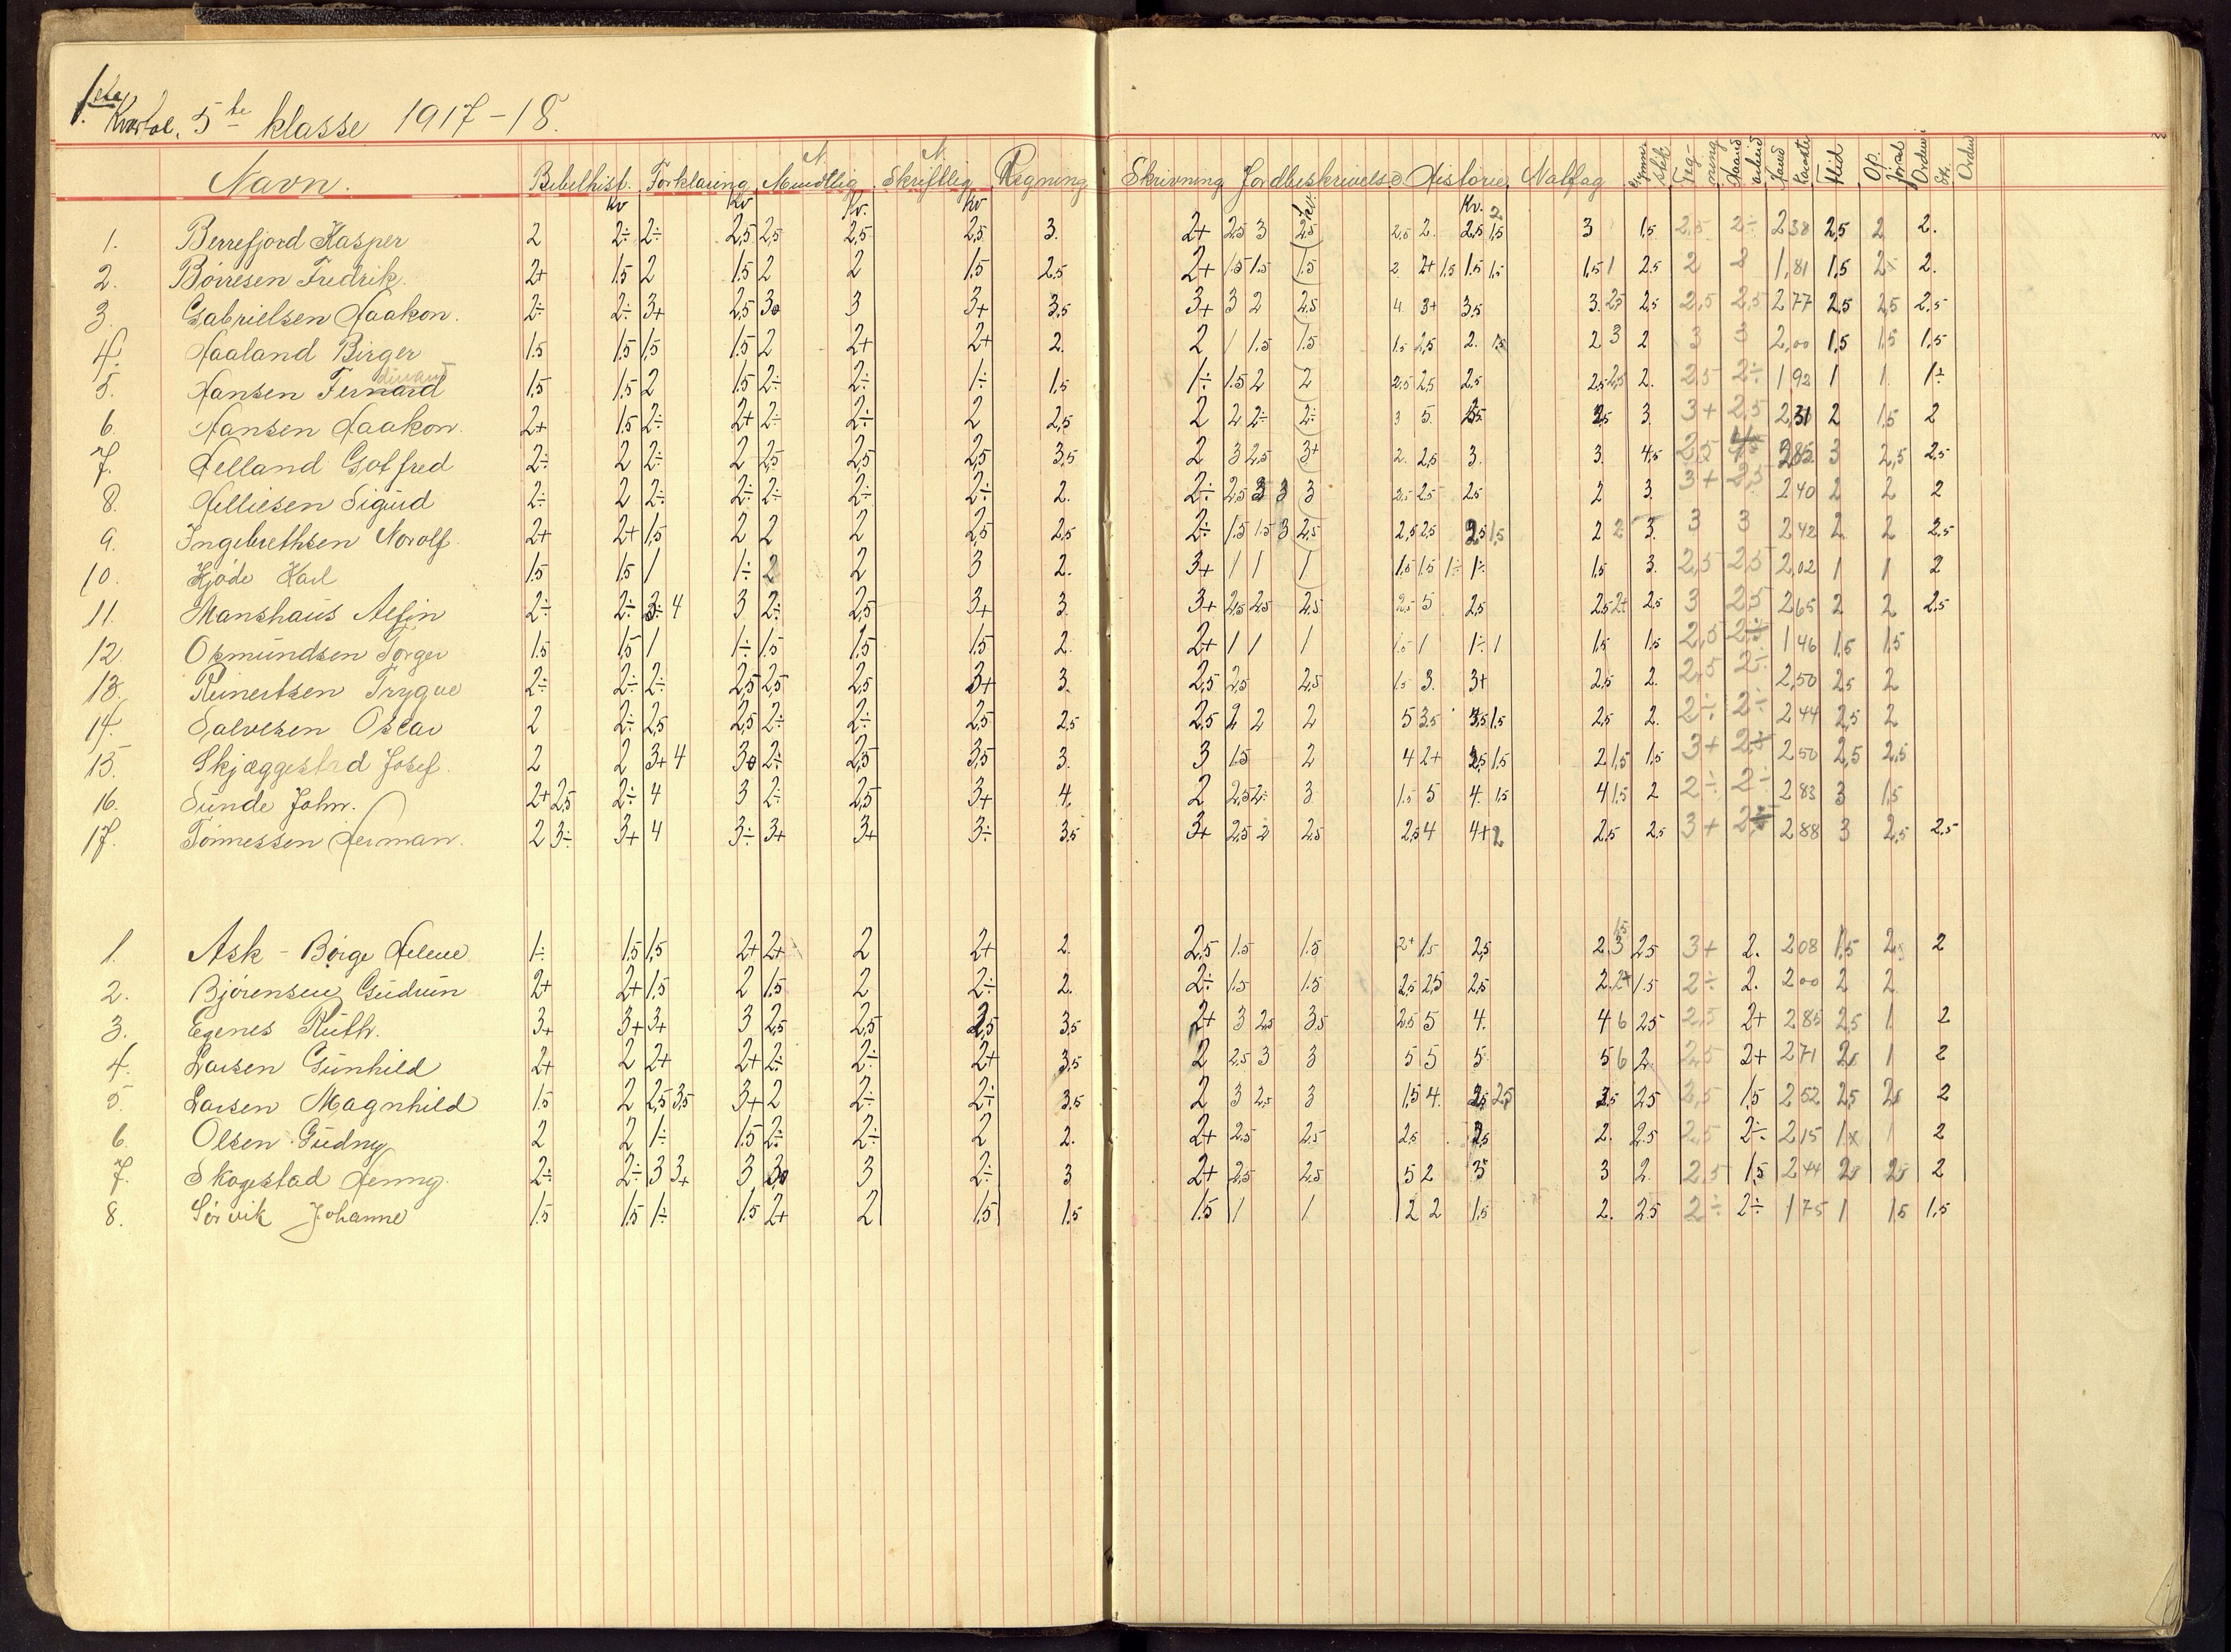 1ste Kvartal. 5te klasse 1917-18.
Navn. Bibelhist. Forklaring N. Mundtlig N. Skriftlig Regning Skrivning Jordbeskrivelse Historie Natfag Gymnastik Tegning Haandarbeid Hovedkarakter Flid Opførsel Orden Sk. Orden
Kv Kv Kv. Kv Kv. Kv. 2
1. Berrefjord Kasper 2 2÷ 2÷ 2,5 2,5 2,5 2,5 3. 2+ 2,5 3 2,5 2,5 2. 2,5 1,5 3 1,5 2,5 2÷ 2 38 2,5 2 2.
2. Börresen Fredrik. 2+ 1,5 2 1,5 2 2 1,5 2,5 2+ 1,5 1,5 1,5 2 2+ 1,5 1,5 1,5 1,5 1 2,5 2 2 1,81 1,5 2× 2.
3. Gabrielsen Haakon. 2÷ 2÷ 3+ 2,5 30 3 3+ 3,5 3+ 3 2 2,5 4 3+ 3,5 3. 2,5 2,5 2,5 2,5 2 77 2,5 2,5 2,5
4. Haaland Birger 1,5 1,5 1,5 1,5 2 2+ 2+ 2. 2 1 1,5 1,5 1,5 2,5 2. 1,5 2 3 2 3 3 2,00 1,5 1,5 1,5
5. Hansen Fernard dinand 1,5 1,5 2 1,5 2÷ 2÷ 1÷ 1,5 1÷ 1,5 2 2 2,5 2,5 2,5 2,5 2,5 2. 2,5 2÷ 1 92 1 1. 1÷
6. Hansen Haakon. 2+ 1,5 2÷ 2+ 2÷ 2÷ 2 2,5 2 2 2÷ 2÷ 3 5. 3,5 2,5 3. 3+ 2,5 2,31 2 1,5 2
7. Helland Gotfred 2÷ 2 2÷ 2 2,5 2,5 2,5 3,5 2 3 2,5 3+ 2. 2,5 3. 3. 4,5 2,5 2 85 3 2,5 2,5
8. Helliesen Sigurd 2÷ 2 2÷ 2÷ 2÷ 2÷ 2÷ 2. 2÷ 2,5 3 3 3 2,5 2,5 2,5 2 3. 3+ 2,5 2 40 2 2 2
9. Ingebrethsen Norolf. 2+ 2+ 1,5 2 2 2 2,5 2,5 2÷ 1,5 1,5 3 2,5 2,5 2,5 2,5 1,5 2 2 3. 3 3 2 42 2. 2 2,5
10. Kjöde Karl 1,5 1,5 1 1÷ 2 2 3 2. 3+ 1 1 1 1,5 1,5 1÷ 1÷ 1,5 3. 2,5 2,5 2,02 1 1 2
11. Manshaus Alfin 2÷ 2÷ 3÷ 4 3 2÷ 2,5 3+ 3. 3+ 2,5 2,5 2,5 2,5 5 2,5 2,5 2+ 2,5 3 2,5 2 65 2 2 2,5
12. Osmundsen Torger 1,5 1,5 1 1÷ 1,5 1,5 1,5 2. 2+ 1 1 1 1,5 1 1÷ 1 1,5 1,5 2,5 2÷ 1 46 1,5 1,5
13. Reinertsen Trygve 2÷ 2÷ 2÷ 2,5 2,5 2,5 3+ 3. 2,5 2,5 2,5 1,5 3. 3+ 2,5 2. 2,5 2÷ 2,50 2,5 2
14. Salvesen Oscar 2 2÷ 2,5 2,5 2÷ 2÷ 2,5 2,5 2,5 2 2 2 5 3,5 3,5 1,5 2,5 2. 2÷ 2÷ 2 44 2,5 2
15. Skjæggestad Josef. 2 2 3+ 4 30 2÷ 2,5 3,5 3. 3 1,5 2 4 2+ 2,5 1,5 2 1,5 1,5 3+ 2,5 2 50 2,5 2,5
16. Sunde John. 2+ 2,5 2÷ 4 3 2÷ 2,5 3+ 4. 2 2,5 2÷ 3 1,5 5 4. 1,5 4 1,5 2 2÷ 2÷ 2 83 3 1,5
17. Tönnessen Herman. 2 3÷ 3+ 4 3÷ 3+ 3+ 3÷ 3,5 3+ 2,5 2 2,5 2,5 4 4+ 2 2,5 2,5 3+ 2,5 2 88 3 2,5 2,5
1. Ask-Börge Helene 1÷ 1,5 1,5 2+ 2+ 2 2+ 2. 2,5 1,5 1,5 2+ 1,5 2,5 2. 3 1,5 2,5 3+ 2. 2 08 1,5 2,5 2
2. Björensen Gudrun 2+ 2+ 1,5 2 1,5 2 2÷ 2. 2÷ 1,5 1,5 2,5 2,5 2,5 2. 2+ 1,5 2÷ 2. 2 00 2 2
3. Egenes Ruth. 3+ 3+ 3+ 3 2,5 2,5 2,5 3,5 2+ 3 2,5 3,5 2,5 5 4. 4 6 2,5 2,5 2+ 2 85 2,5 1 2
4. Larsen Gunhild 2+ 2 2+ 2+ 2÷ 2÷ 2+ 3,5 2 2,5 3 3 5 5 5 5 6 2. 2,5 2+ 2 71 2 1 2
5. Larsen Magnhild 1,5 2 2,5 3,5 3+ 2 2÷ 2÷ 3,5 2 3 2,5 3 1,5 4. 2,5 2,5 3,5 2,5 2,5 1,5 2 52 2,5 2,5 2
6. Olsen Gudny 2 2 1÷ 1,5 2÷ 2÷ 2 2. 2+ 2,5 2,5 2,5 2,5 2. 2,5 2,5 2÷ 2 15 1× 1 2
7. Skogestad Henny. 2÷ 2÷ 3 3+ 3 30 3 2÷ 3 2+ 2,5 2,5 5 2 3 3 2. 2,5 1,5 2 44 2 2,5 2
8. Sörvik Johanne 1,5 1,5 1÷ 1,5 2+ 2 1,5 1,5 1,5 1 1 1 2 2 1,5 2. 2,5 2÷ 2÷ 1 75 1 1,5 1,5